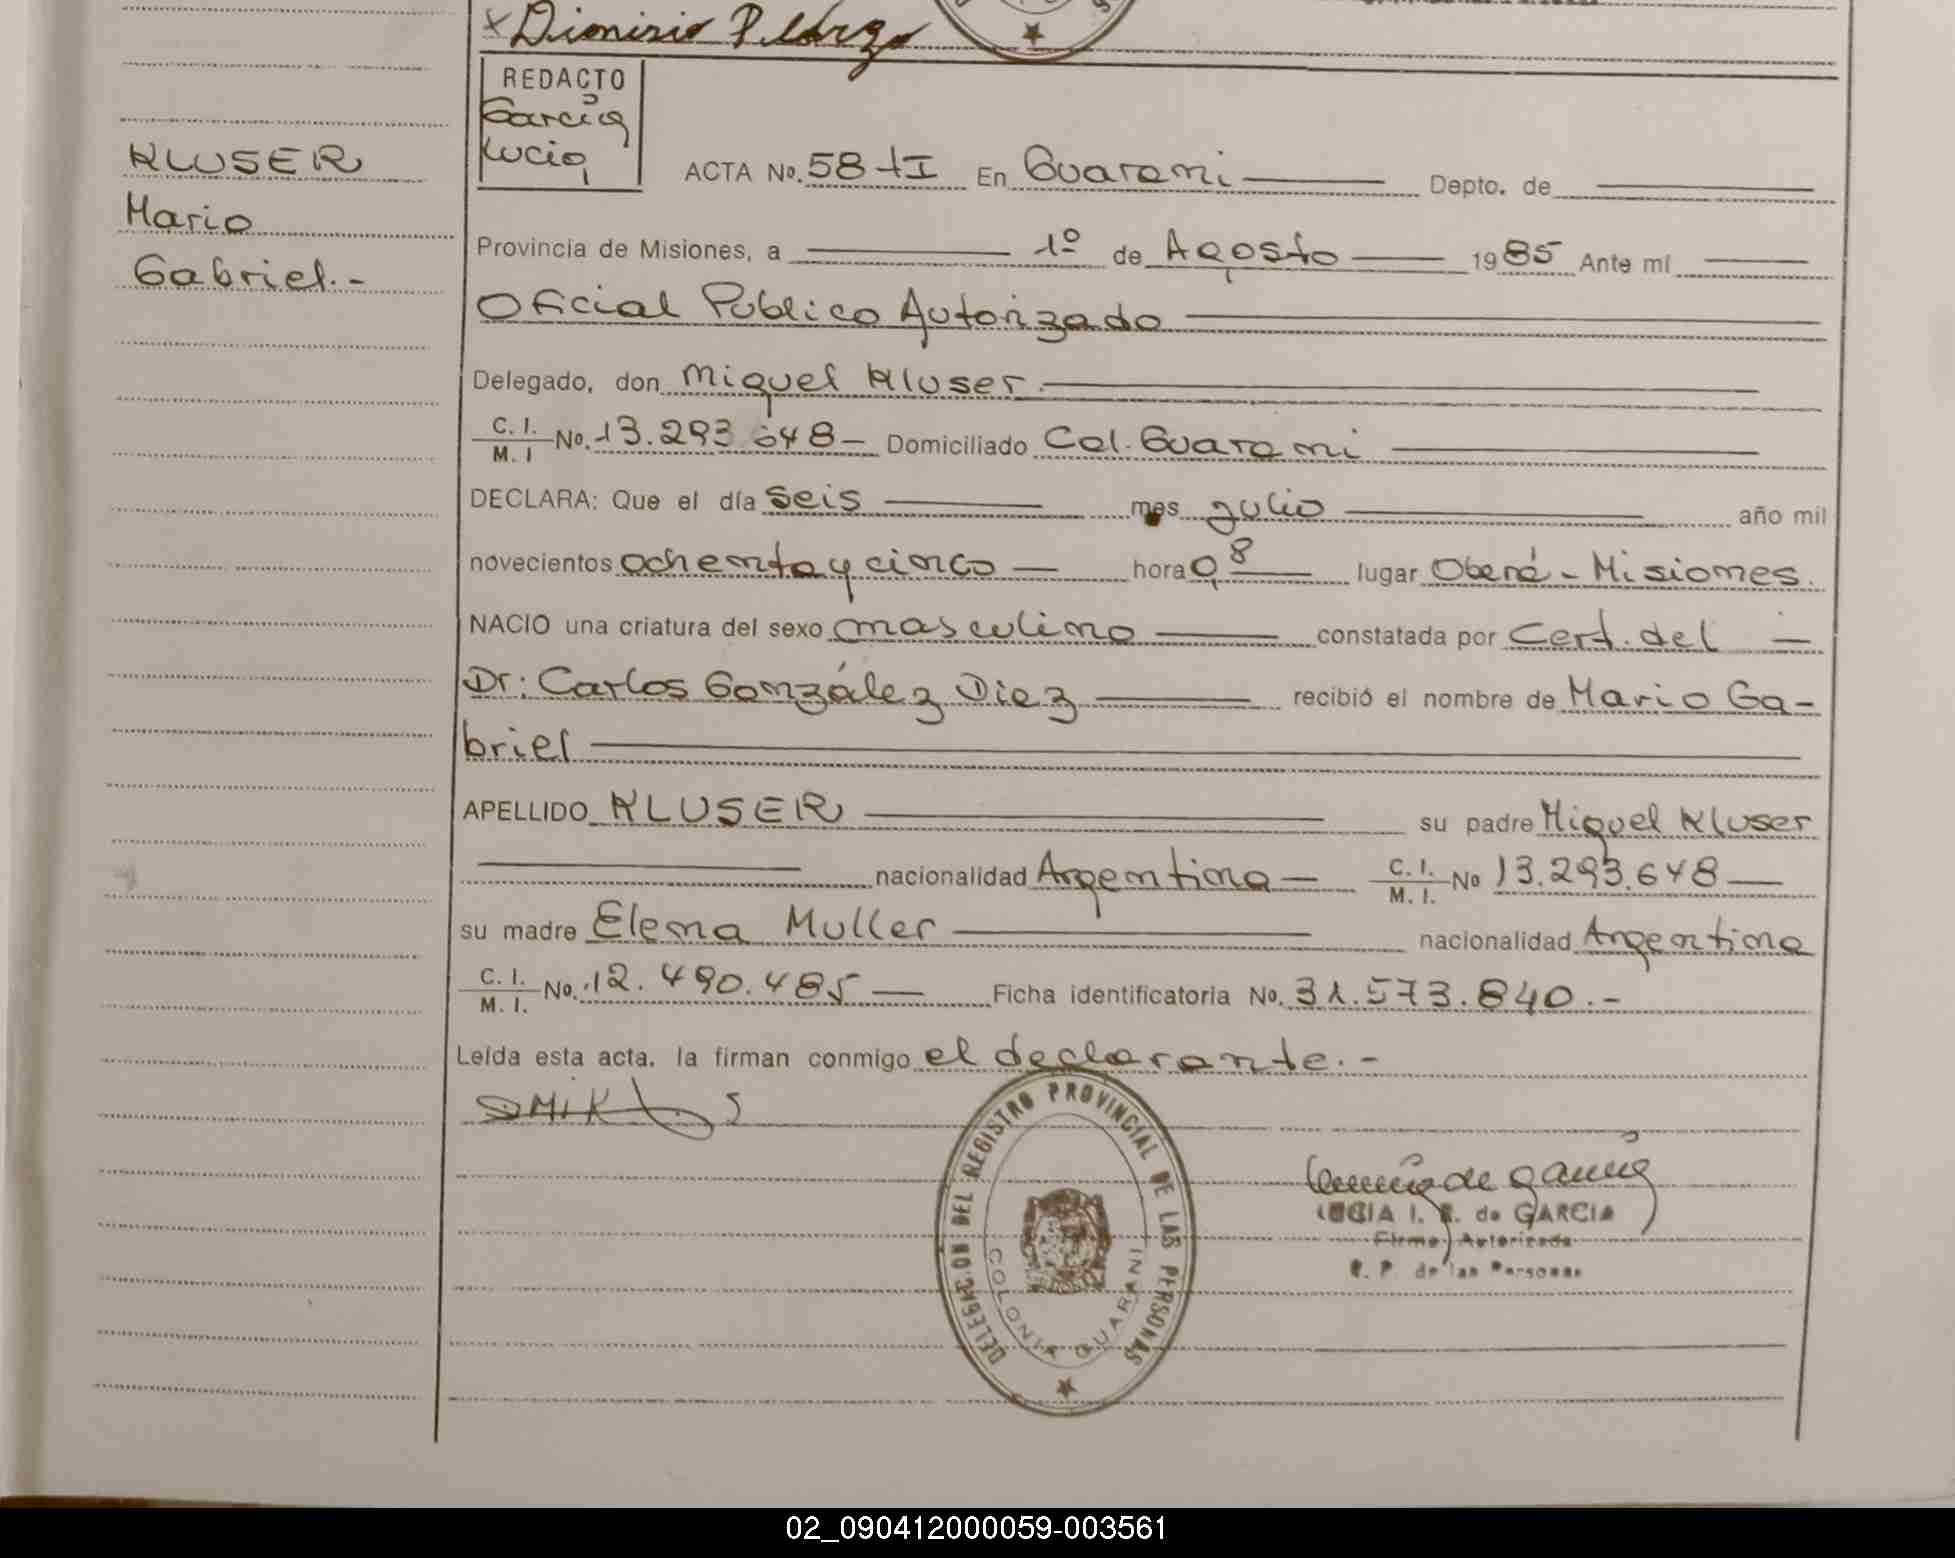 Dionisio
REDACTO
García
Lucia
KLUSER
Mario
Gabriel.-
ACTA No. 58 tI En Guarani Depto. de
Provincia de Misiones, a 1º de Agosto 1985 Ante mí
Oficial Publico Autorizado
Delegado, don Miguel Kluser.
C. I. / M. I No. 13.293.648 Domiciliado Col. Guarani
DECLARA: Que el día seis mes julio año mil
novecientos ochenta y cinco hora 8 lugar Oberá - Misiones.
NACIO una criatura del sexo masculino constatada por Cert. del
Dr: Carlos González Diez recibió el nombre de Mario Ga-
briel
APELLIDO KLUSER su padre Miguel Kluser
nacionalidad Argentina C. I. / M. I. No 13.293.648
su madre Elena Muller nacionalidad Argentina
C. I. / M. I. No. 12.490.485 Ficha identificatoria No. 31.573.840.-
Leída esta acta, la firman conmigo el declarante.-
DELEGACION DEL REGISTRO PROVINCIAL DE LAS PERSONAS
COLONIA GUARANI
LUCIA I. de GARCIA
Firma Autorizada
R. P. de las Personas
02_090412000059-003561